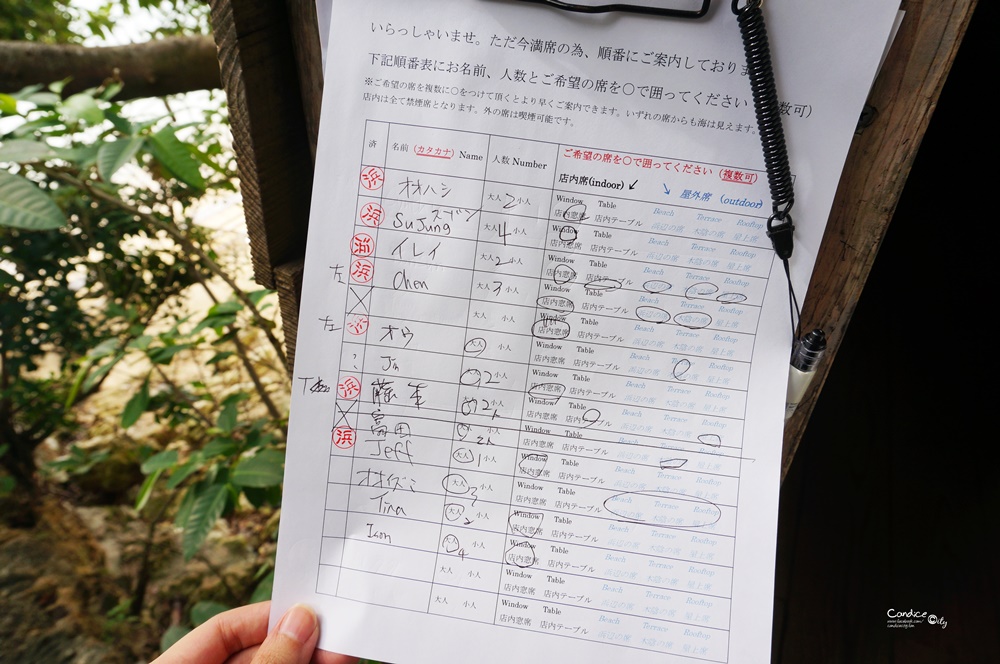 いらっしゃいませ。ただ今満席の為、順番にご案内しておりま
下記順番表にお名前、人数とご希望の席を〇で囲ってください 数可）
※ご希望の席を複数に〇をつけて頂くとより早くご案内できます。いずれの席からも海は見えます。
店内は全て禁煙席となります。外の席は喫煙可能です。
済 名前（カタカナ）Name 人数 Number ご希望の席を〇で囲ってください（複数可）
店内席(indoor) 屋外席 (outdoor)
浜 オオハシ 大人 2 小人 Window Table Beach Terrace Rooftop
店内窓席 店内テーブル 浜辺の席 木陰の席 屋上席
浜 SuJung スーザン 大人 4 小人 Window Table Beach Terrace Rooftop
店内窓席 店内テーブル 浜辺の席 木陰の席 屋上席
浜 イレイ 大人 2 小人 Window Table Beach Terrace Rooftop
店内窓席 店内テーブル 浜辺の席 木陰の席 屋上席
左 浜 Chen 大人 3 小人 Window Table Beach Terrace Rooftop
店内窓席 店内テーブル 浜辺の席 木陰の席 屋上席
大人 小人 Window Table Beach Terrace Rooftop
店内窓席 店内テーブル 浜辺の席 木陰の席 屋上席
左 オウ 大人 小人 Window Table Beach Terrace Rooftop
店内窓席 店内テーブル 浜辺の席 木陰の席 屋上席
? Jin 2 小人 Window Table Beach Terrace Rooftop
店内窓席 店内テーブル 浜辺の席 木陰の席 屋上席
浜 藤本 2人 小人 Window Table Beach Terrace Rooftop
店内窓席 店内テーブル 浜辺の席 木陰の席 屋上席
富田 大人 2人 小人 Window Table Beach Terrace Rooftop
店内窓席 店内テーブル 浜辺の席 木陰の席 屋上席
浜 Jeff 大人 1 小人 Window Table Beach Terrace Rooftop
店内窓席 店内テーブル 浜辺の席 木陰の席 屋上席
オオイズミ 大人 3 小人 Window Table Beach Terrace Rooftop
店内窓席 店内テーブル 浜辺の席 木陰の席 屋上席
Tina 大人 2 小人 Window Table Beach Terrace Rooftop
店内窓席 店内テーブル 浜辺の席 木陰の席 屋上席
Icon 大人 4 小人 Window Table Beach Terrace Rooftop
店内窓席 店内テーブル 浜辺の席 木陰の席 屋上席
大人 小人 Window Table Beach Terrace Rooftop
店内窓席 店内テーブル 浜辺の席 木陰の席 屋上席
大人 小人 Window Table Beach Terrace Rooftop
店内窓席 店内テーブル 浜辺の席 木陰の席 屋上席
Candice City